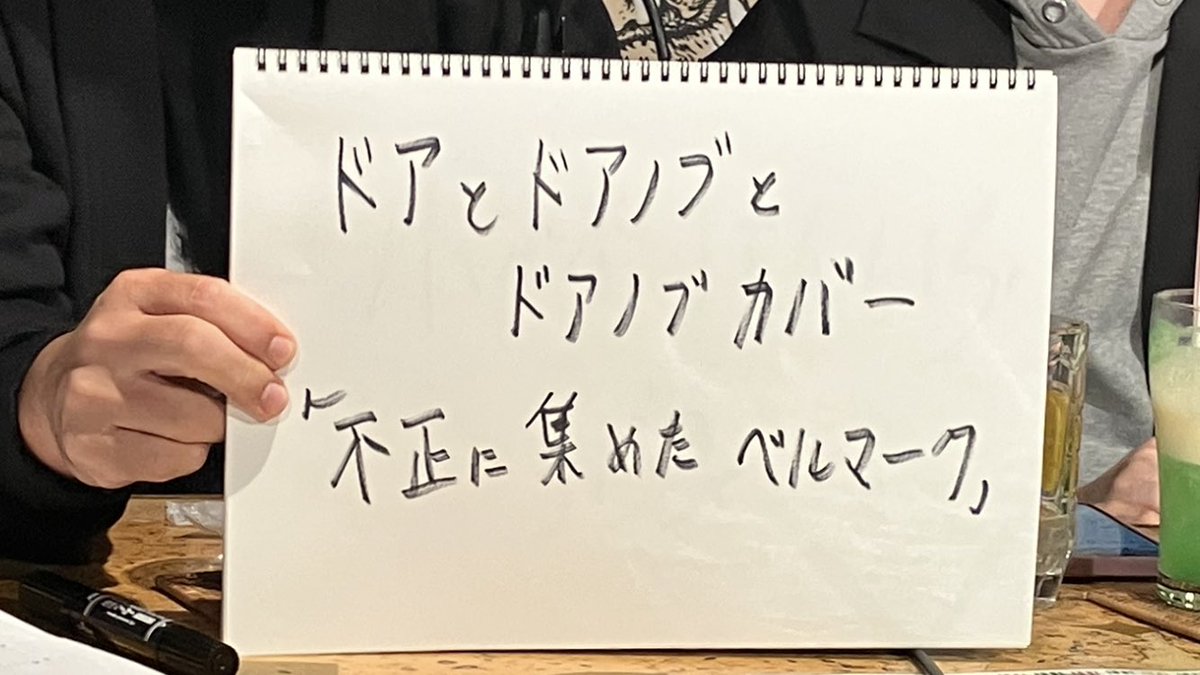 ドアとドアノブと
ドアノブカバー
「不正に集めたベルマーク」